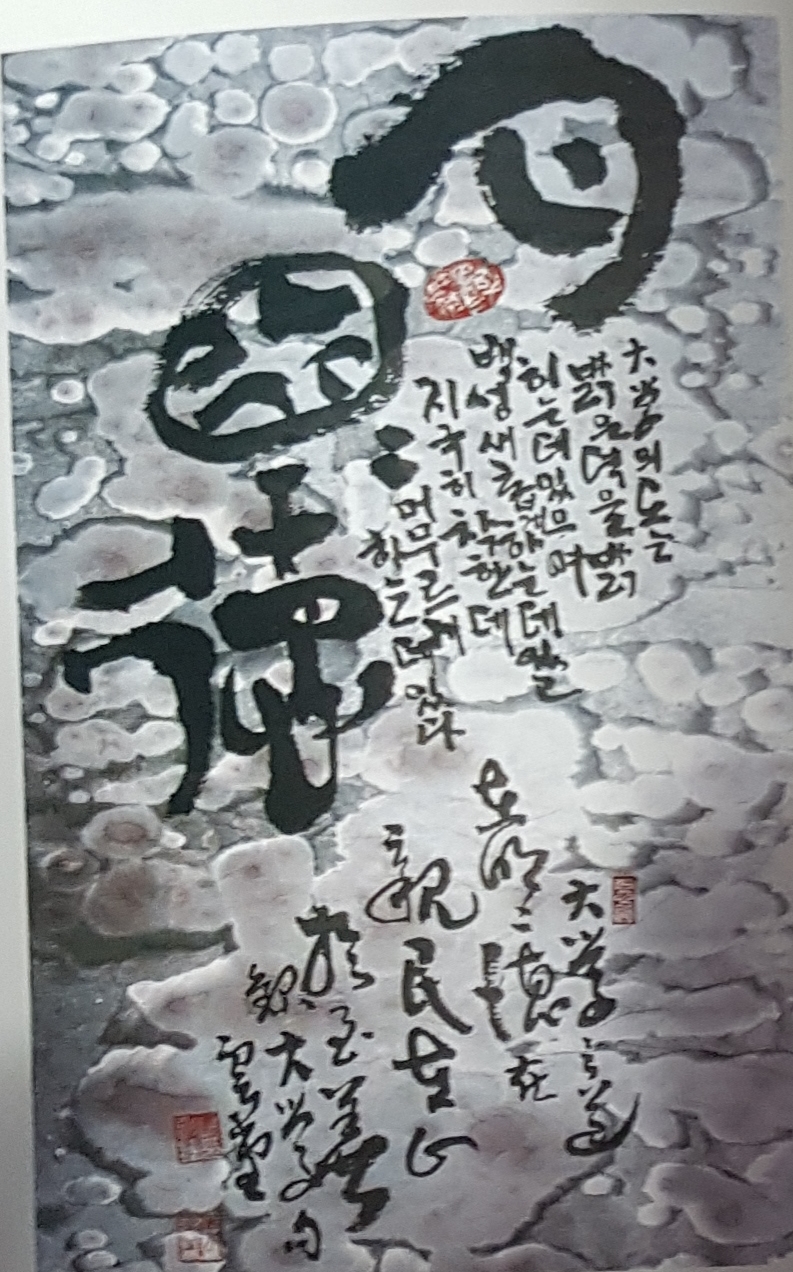 明〻德
大学의 도는
밝은 덕을 밝
히는데 있으며
백성 새롭게 하는데 있고
지극히 착한데
머무르게
하는데 있다
大学之道
在明〻德在
親民在止
於至善
錄大学句